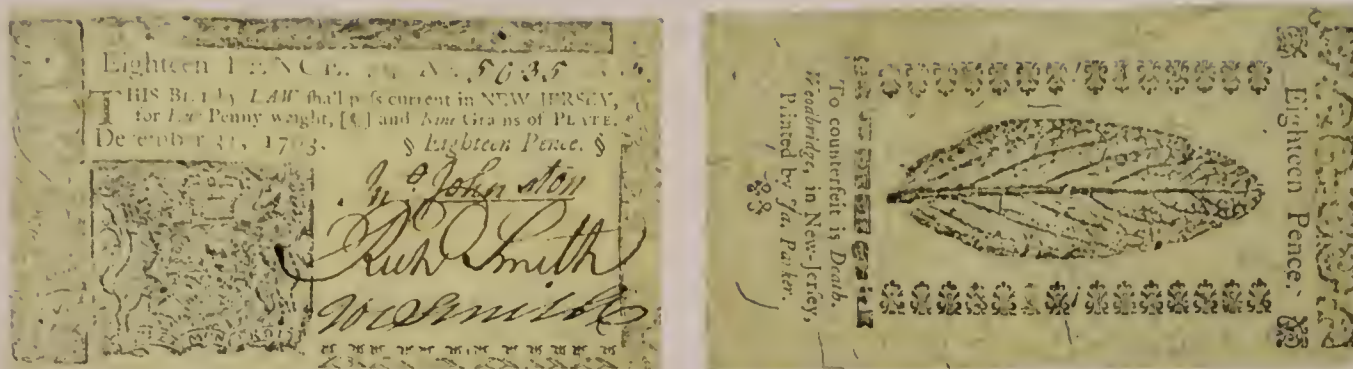 Eighteen PENCE. No. 5635
THIS Bill by LAW shall pass current in NEW JERSEY,
for Four Penny weight, [¶] and Nine Grains of PLATE.
December 31, 1763.
§ Eighteen Pence. §
Jno Johnston
Richd Smith
W Smith
Eighteen Pence.
To counterfeit is Death.
Woodbridge, in New-Jersey,
Printed by Ja. Parker.